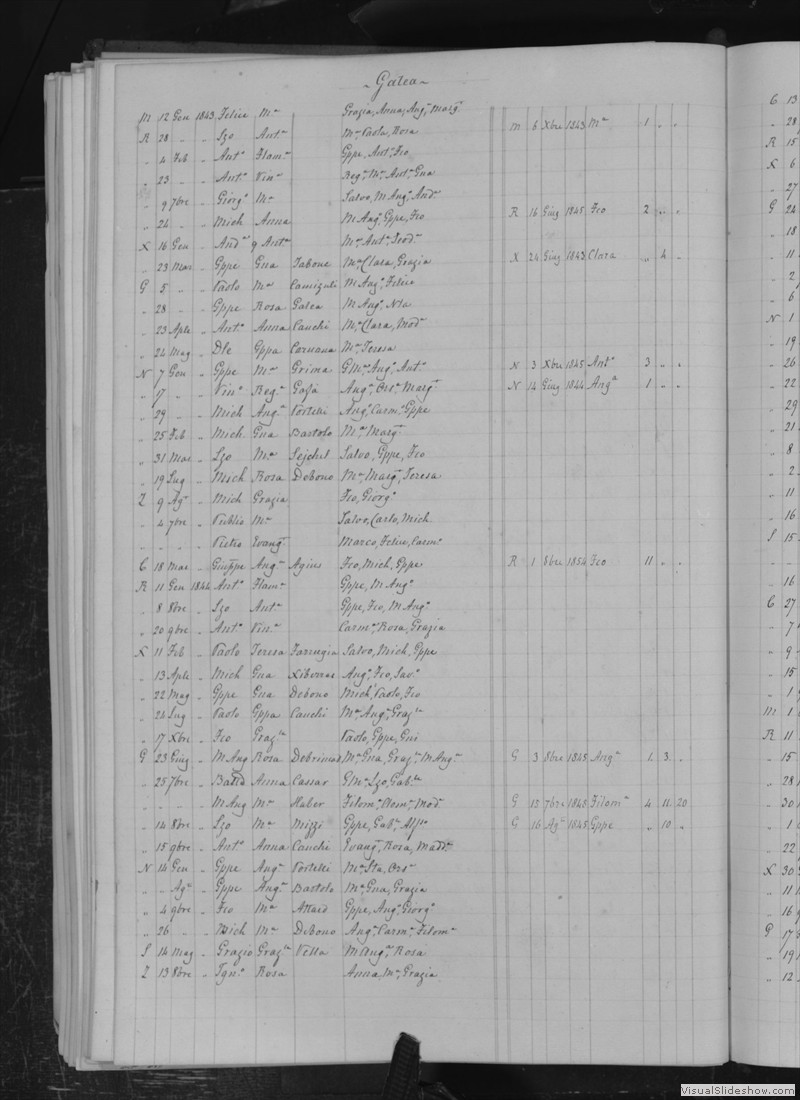 Galea
M 12 Gen 1843 Felice Ma Grazia, Anna, Anga, Marga
R 28 " " Lzo Anta Ma Paola, Rosa M 6 Xbre 1843 Ma 1 " "
" 4 Feb " Anto Flama Gppe, Anto, Fco
" 23 " " Anto Vina Ma, Anta, Gna
" 9 7bre " Giorgo Ma Salvo, M Anga, Anda
" 24 " " Mich Anna M Anga, Gppe, Fco R 16 Giug 1845 Fco 2 " "
X 16 Gen " Anda q Anta Ma, Anta, Teoda
" 23 Mar " Gppe Gna Tabone Ma, Clara, Grazia X 24 Giug 1843 Clara " 4 "
G 5 " " Paolo Ma Camizuli M Anga, Felice
" 28 " " Gppe Rosa Galea M Anga, Nla
" 23 Aple " Anto Anna Cauchi Ma, Clara, Moda
" 24 Mag " Dle Gppa Caruana Ma, Teresa
N 7 Gen " Gppe Ma Grima GMa, Anga, Anto N 3 Xbre 1845 Anto 3 " "
" 17 " " Vino Rega Gafà Anga, Orsa, Marga N 14 Giug 1844 Anga 1 " "
" 29 " " Mich Anga Portelli Anga, Carma, Gppe
" 25 Feb " Mich Gna Bartolo Ma, Marga
" 31 Mar " Lzo Ma Sejchel Salvo, Gppe, Fco
" 19 Lug " Mich Rosa Debono Ma, Marga, Teresa
Z 9 Ago " Mich Grazia Fco, Giorgo
" 4 7bre " Publio Ma Salvo, Carlo, Mich
" " " " Pietro Evanga Marco, Felice, Carmo
C 18 mar " Giuppe Anga Agius Fco, Mich, Gppe R 1 8bre 1854 Fco 11 " "
R 11 Gen 1844 Anto Flama Gppe, M Anga
" 8 8bre " Lzo Anta Gppe, Fco, M Anga
" 20 9bre " Anto Vina Carma, Rosa, Grazia
X 11 Feb " Paolo Teresa Farrugia Salvo, Mich, Gppe
" 13 Aple " Mich Gna Xiberras Anga, Fco, Savo
" 22 Mag " Gppe Gna Debono Mich, Paolo, Fco
" 24 Lug " Paolo Gppa Cauchi Ma, Anga, Grazla
" 17 Xbre " Fco Grazla Paolo, Gppe, Gui
G 23 Giug " M Ang Rosa Debrincat Ma, Gna, Grazla, M Anga G 3 8bre 1845 Anga 1 3 "
" 25 7bre " Batta Anna Cassar GMa, Lzo, Gabla
" " " " M Ang Ma Haber Filoma, Cloma, Moda G 13 7bre 1848 Filoma 4 11 20
" 14 8bre " Lzo Ma Mizzi Gppe, Gabla, Alfso G 16 Ago 1845 Gppe " 10 "
" 15 9bre " Anto Anna Cauchi Evanga, Rosa, Madda
N 14 Gen " Gppe Anga Portelli Ma, Sta, Orsa
" " Ago " Gppe Anga Bartolo Ma, Gna, Grazia
" 4 9bre " Fco Ma Attard Gppe, Anga, Giorgo
" 26 " " Mich Ma DeBono Anga, Carma, Filoma
S 14 Mag " Grazio Grazla Vella M Anga, Rosa
Z 13 8bre " Igno Rosa Anna, Ma, Grazia
VisualSlideshow.com